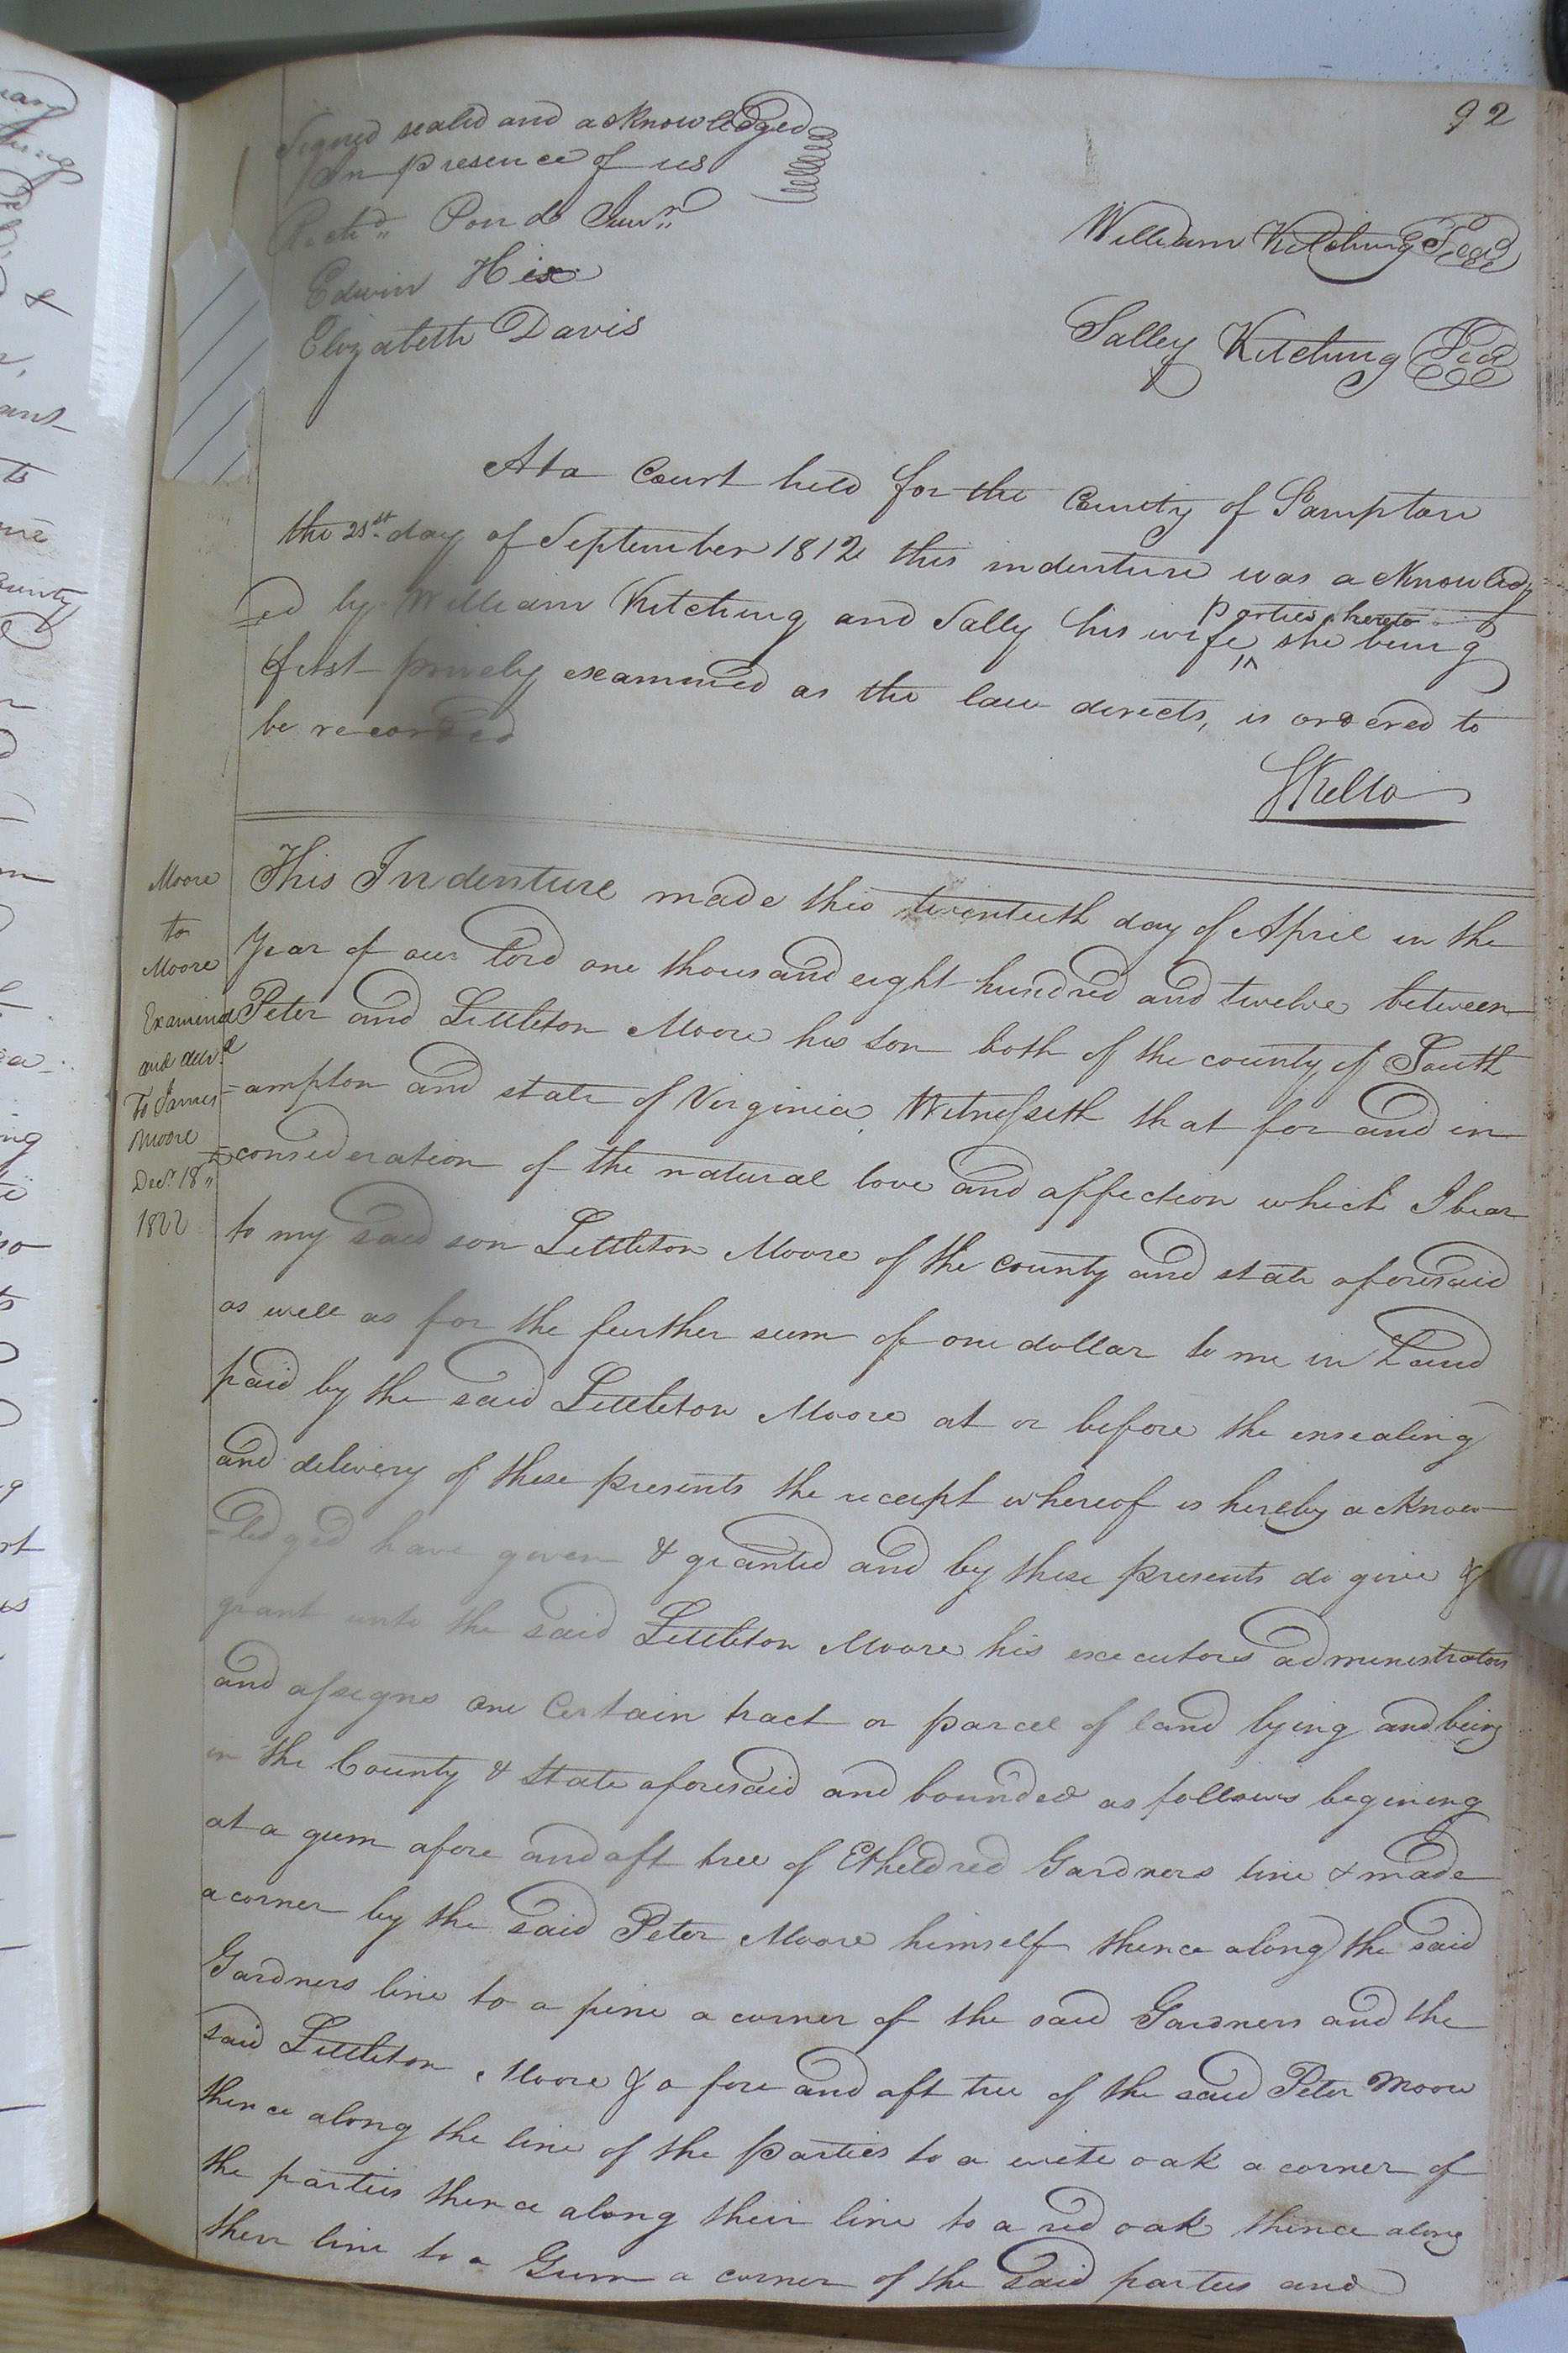 92
Signed sealed and acknowledged
In presence of us
Pond Junr.
Edwin Hix
Elizabeth Davis
William Kitching Seal
Salley Kitching Seal
At a Court held for the County of Sampton
the 21st. day of September 1812 this indenture was acknowledg
=ed by William Kitching and Sally his wife parties hereto she being
first prively examined as the law directs, is ordered to
be recorded
SKello
Moore
to
Moore
Examined
and deld.
To James
Moore
Decr. 18th
1822
This Indenture made this twentieth day of April in the
Year of our Lord one thousand eight hundred and twelve between
Peter and Littleton Moore his son both of the county of South
=ampton and state of Virginia, Witnesseth that for and in
=consideration of the natural love and affection which I bear
to my said son Littleton Moore of the county and state aforesaid
as well as for the further sum of one dollar to me in hand
paid by the said Littleton Moore at or before the ensealing
and delivery of these presents the receipt whereof is hereby acknow
=ledged have given & granted and by these presents do give &
grant unto the said Littleton Moore his executors administrators
and assigns one certain tract or parcel of land lying and being
in the County & state aforesaid and bounded as follows begining
at a gum afore and aft tree of Etheldred Gardners line & made
a corner by the said Peter Moore himself thence along the said
Gardners line to a pine a corner of the said Gardners and the
said Littleton Moore & a fore and aft tree of the said Peter Moore
thence along the line of the parties to a wite oak a corner of
the parties thence along their line to a red oak thence along
their line to a Gum a corner of the said parties and